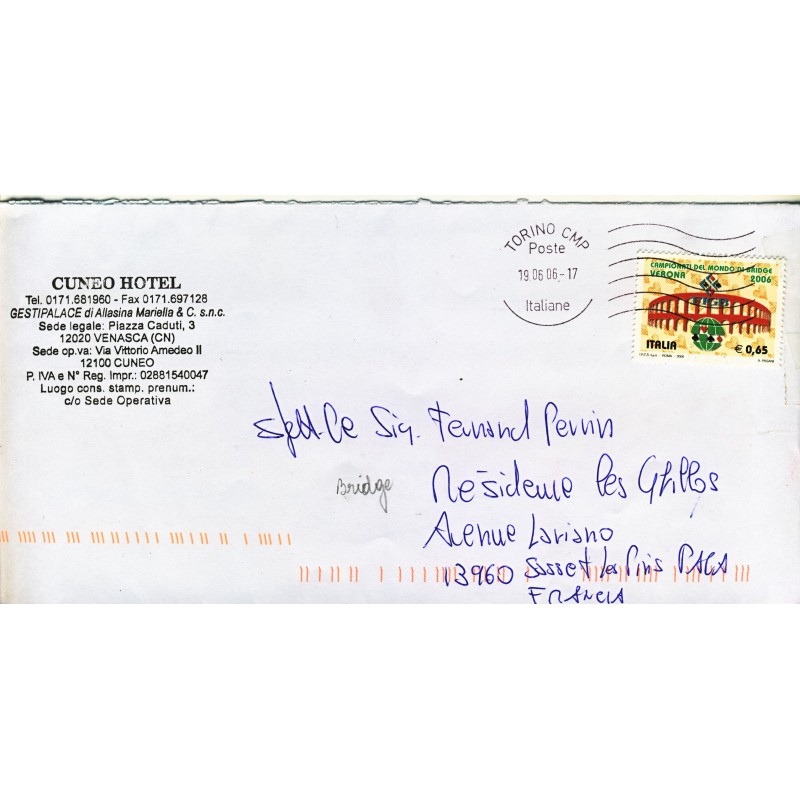 CUNEO HOTEL
Tel. 0171.681960 - Fax 0171.697128
GESTIPALACE di Allasina Mariella & C. s.n.c.
Sede legale: Piazza Caduti, 3
12020 VENASCA (CN)
Sede op.va: Via Vittorio Amedeo II
12100 CUNEO
P. IVA e N° Reg. Impr.: 02881540047
Luogo cons. stamp. prenum.:
c/o Sede Operativa
TORINO CMP
Poste
19.06.06.-17
Italiane
CAMPIONATI DEL MONDO DI BRIDGE
VERONA 2006
FIGB
ITALIA €0,65
I.P.Z.S. S.p.A. - ROMA - 2006
Spett.le Sig. Fernand Perrin
Bridge
Résidence les
Avenue Lariano
13960 Sausset les Pins PACA
FRANCIA